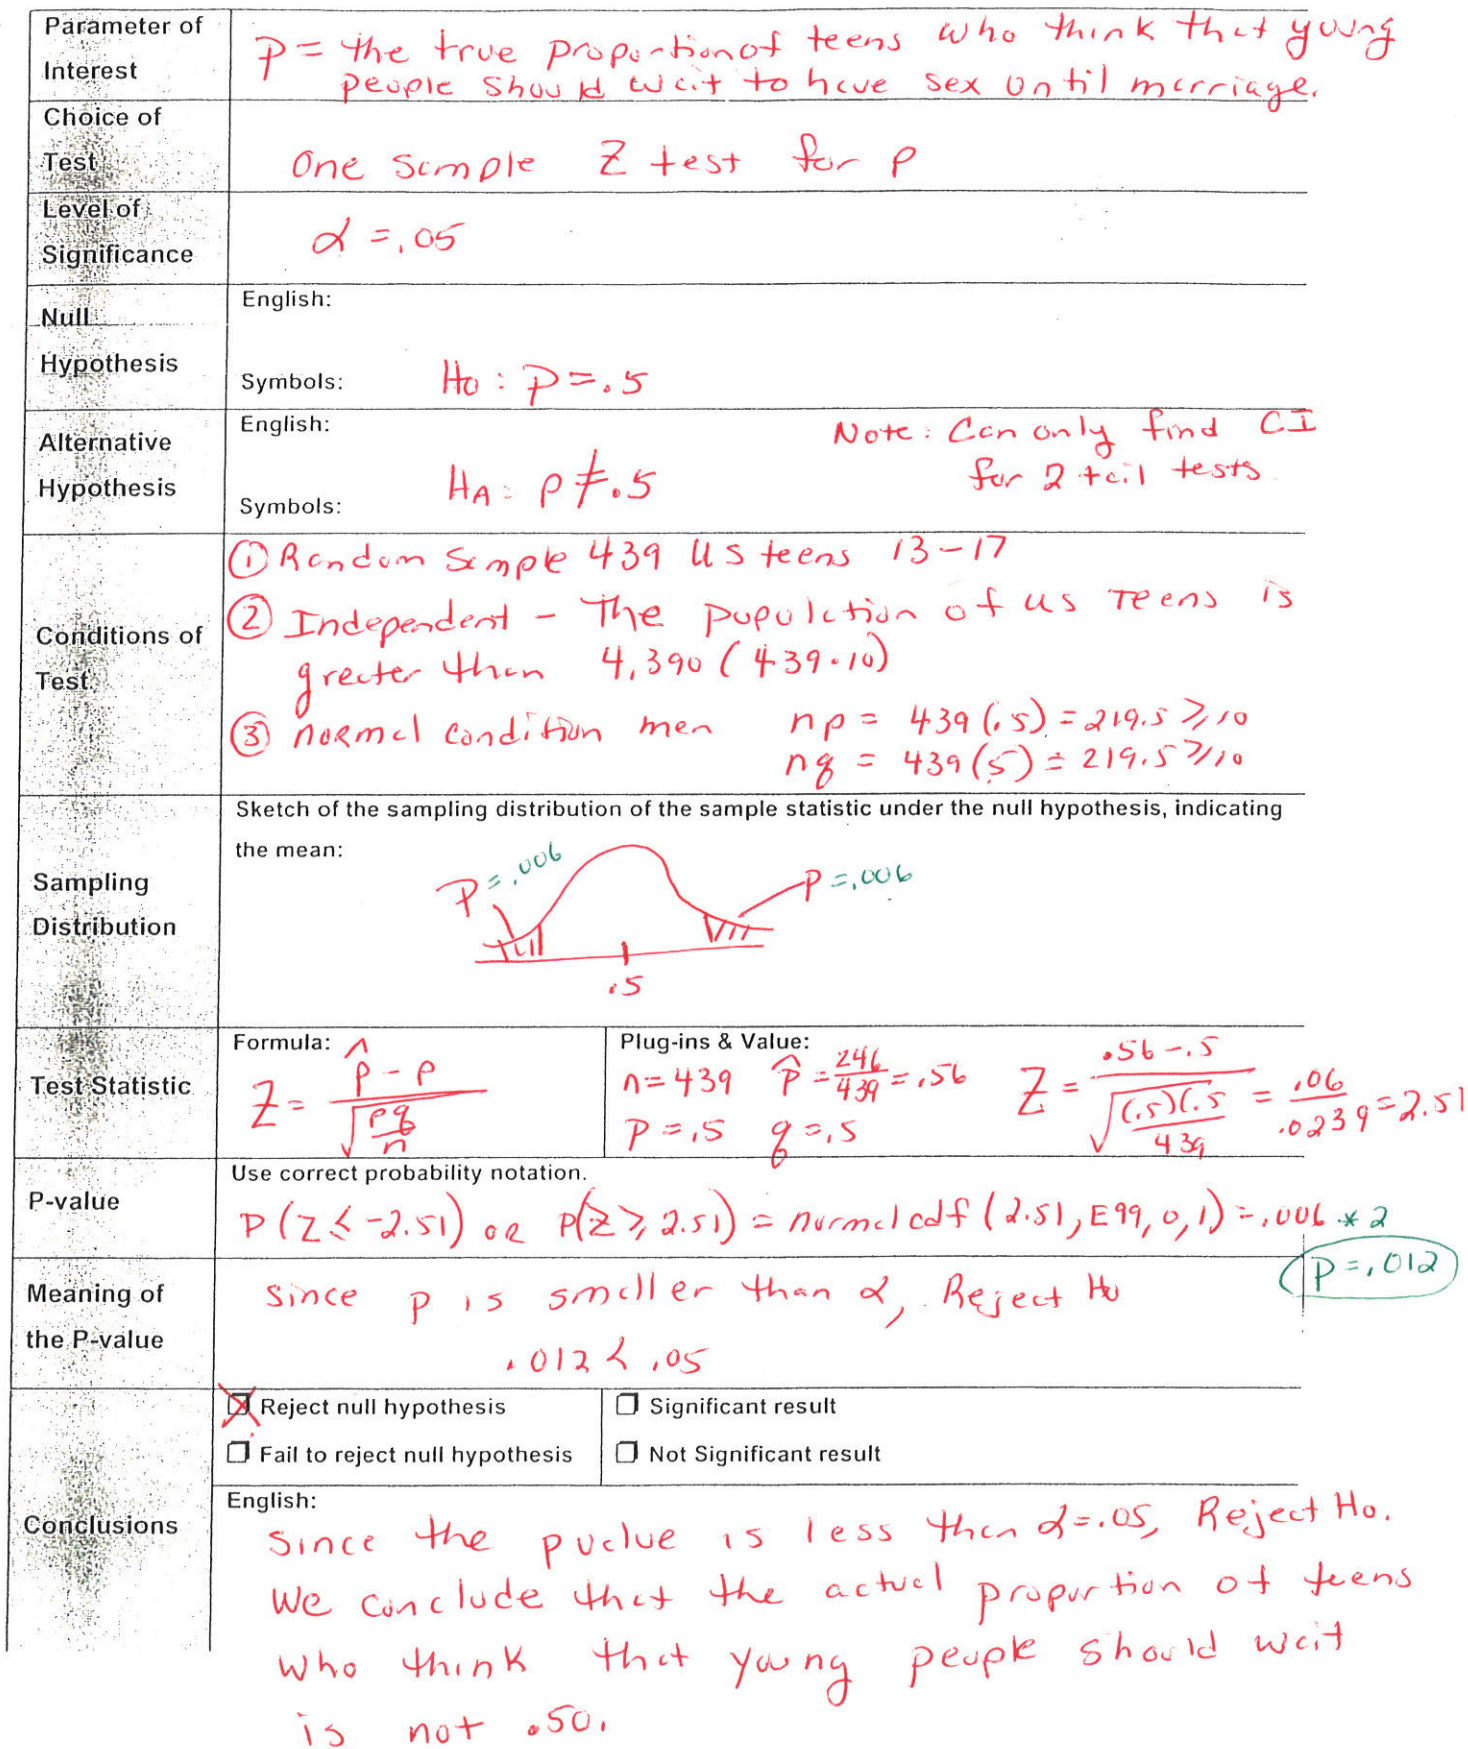 Parameter of
Interest
P = the true proportion of teens who think that young
people should wait to have sex until marriage.
Choice of
Test
One sample Z test for p
Level of
Significance
α = .05
Null
Hypothesis
English:
Symbols: Ho : P = .5
Alternative
Hypothesis
English:
Note: Can only find CI
for 2 tail tests
Symbols: HA: p ≠ .5
Conditions of
Test
① Random Sample 439 US teens 13-17
② Independent - The population of us Teens is
greater than 4,390 (439·10)
③ normal condition men np = 439(.5) = 219.5 ≥ 10
nq = 439(.5) = 219.5 ≥ 10
Sampling
Distribution
Sketch of the sampling distribution of the sample statistic under the null hypothesis, indicating
the mean:
P = .006
P = .006
.5
Test Statistic
Formula:
Z = p̂ - p / √(pq/n)
Plug-ins & Value:
n = 439 p̂ = 246/439 = .56 Z = .56 - .5 / √((.5)(.5/439) = .06/.0239 = 2.51
P = .5 q = .5
P-value
Use correct probability notation.
P(Z ≤ -2.51) OR P(Z ≥ 2.51) = normalcdf (2.51, E99, 0, 1) = .006 * 2
P = .012
Meaning of
the P-value
Since p is smaller than α, Reject Ho
.012 < .05
Conclusions
Reject null hypothesis
Fail to reject null hypothesis
Significant result
Not Significant result
English:
Since the pvalue is less than α = .05, Reject Ho.
We conclude that the actual proportion of teens
who think that young people should wait
is not .50.